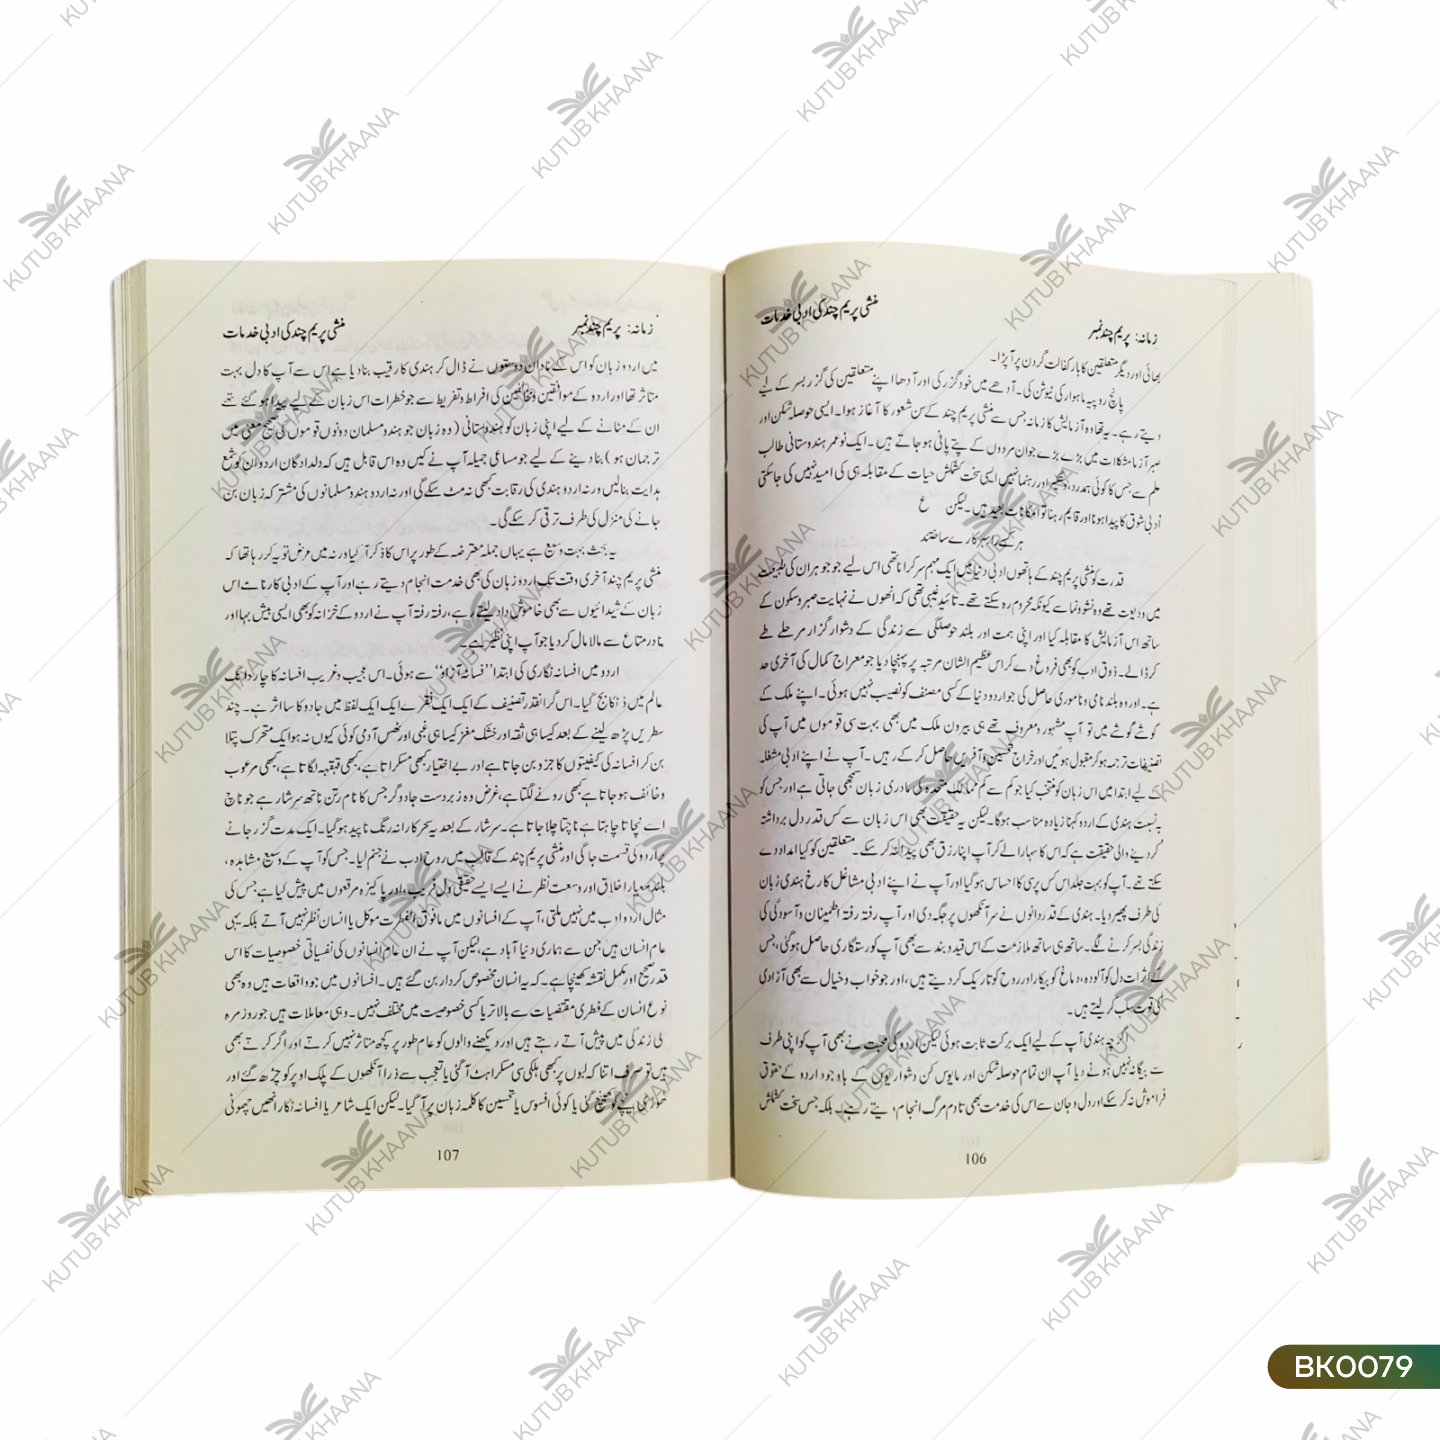 زمانہ: پریم چند نمبر
منشی پریم چند کی ادبی خدمات
بھائی اور دیگر متعلقین کا بار کفالت گردن پر آ پڑا۔
پانچ روپیہ ماہوار کی ٹیوشن کی۔ آدھے میں خود گزر کی اور آدھا اپنے متعلقین کی گزر بسر کے لیے
دیتے رہے۔ یہ تھا وہ آزمایش کا زمانہ جس سے منشی پریم چند کے سن شعور کا آغاز ہوا۔ ایسی حوصلہ شکن اور
صبر آزما مشکلات میں بڑے بڑے جوان مردوں کے پتے پانی ہو جاتے ہیں۔ ایک نو عمر ہندوستانی طالب
علم سے جس کا کوئی ہمدرد، و اور رہنما نہیں ایسی سخت کشمکش حیات کے مقابلہ ہی کی امید نہیں کی جا سکتی
ادبی شوق کا پیدا ہونا اور قایم رہنا تو امکانات بعید ہیں۔ لیکن ع
ہر کسے را بہر کارے ساختند
قدرت کو منشی پریم چند کے ہاتھوں ادبی دنیا میں ایک مہم سر کرانا تھی اس لیے جو جوہر ان کی طبیعت
میں ودیعت تھے وہ نشوونما سے کیونکر محروم رہ سکتے تھے۔ تائید غیبی تھی کہ انھوں نے نہایت صبر و سکون کے
ساتھ اس آزمایش کا مقابلہ کیا اور اپنی ہمت اور بلند حوصلگی سے زندگی کے دشوار گزار مرحلے طے
کر ڈالے۔ ذوق ادب کو بھی فروغ دے کر اس عظیم الشان مرتبہ پر پہنچا دیا جو معراج کمال کی آخری حد
ہے۔ اور وہ بلند نامی و ناموری حاصل کی جو اردو دنیا کے کسی مصنف کو نصیب نہیں ہوئی۔ اپنے ملک کے
گوشے گوشے میں تو آپ مشہور و معروف تھے ہی بیرون ملک میں بھی بہت سی قوموں میں آپ کی
تصنیفات ترجمہ ہو کر مقبول ہوئیں اور خراج تحسین و آفریں حاصل کر کے رہیں۔ آپ نے اپنے ادبی مشغلہ
کے لیے ابتدا میں اس زبان کو منتخب کیا جو کم سے کم ممالک متحدہ کی مادری زبان سمجھی جاتی ہے اور جس کو
بہ نسبت ہندی کے اردو کہنا زیادہ مناسب ہوگا۔ لیکن یہ حقیقت بھی اس زبان سے کس قدر دل برداشتہ
کر دینے والی حقیقت ہے کہ اس کا سہارا لے کر آپ اپنا رزق بھی پیدا نہ کر سکے۔ متعلقین کو کیا امداد دے
سکتے تھے۔ آپ کو بہت جلد اس کس پرسی کا احساس ہو گیا اور آپ نے اپنے ادبی مشاغل کا رخ ہندی زبان
کی طرف پھیر دیا۔ ہندی کے قدردانوں نے سر آنکھوں پر جگہ دی اور آپ رفتہ رفتہ اطمینان و آسودگی کی
زندگی بسر کرنے لگے۔ ساتھ ہی ساتھ ملازمت کے اس قید و بند سے بھی آپ کو رستگاری حاصل ہو گئی، جس
کے اثرات دل کو آلودہ، دماغ کو بیکار اور روح کو تاریک کر دیتے ہیں، اور جو خواب و خیال سے بھی آزادی
کی قوت سلب کر لیتے ہیں۔
اگرچہ ہندی آپ کے لیے ایک برکت ثابت ہوئی لیکن اردو کی محبت نے بھی آپ کو اپنی طرف
سے بیگانہ نہیں ہونے دیا آپ ان تمام حوصلہ شکن اور مایوس کن دشواریوں کے باوجود اردو کے حقوق
فراموش نہ کر سکے اور دل و جان سے اس کی خدمت بھی تا دم مرگ انجام دیتے رہے۔ بلکہ جس سخت کشمکش
106
زمانہ: پریم چند نمبر
منشی پریم چند کی ادبی خدمات
میں اردو زبان کو اس کے نادان دوستوں نے ڈال کر ہندی کا رقیب بنا دیا ہے اس سے آپ کا دل بہت
متاثر تھا اور اردو کے موافقین و مخالفین کی افراط و تفریط سے جو خطرات اس زبان کے لیے پیدا ہو گئے تھے
ان کے مٹانے کے لیے اپنی زبان کو ہندوستانی (وہ زبان جو ہندو مسلمان دونوں قوموں کی صحیح معنی میں
ترجمان ہو) بنا دینے کے لیے جو مساعی جمیلہ آپ نے کیں وہ اس قابل ہیں کہ دلدادگان اردو ان کو شمع
ہدایت بنالیں ورنہ اردو ہندی کی رقابت کبھی نہ مٹ سکے گی اور نہ اردو ہندو مسلمانوں کی مشترکہ زبان بن
جانے کی منزل کی طرف ترقی کر سکے گی۔
یہ بحث بہت وسیع ہے یہاں جملہ معترضہ کے طور پر اس کا ذکر آ گیا ورنہ میں عرض تو یہ کر رہا تھا کہ
منشی پریم چند آخری وقت تک اردو زبان کی بھی خدمت انجام دیتے رہے اور آپ کے ادبی کارنامے اس
زبان کے شیدائیوں سے بھی خاموش داد لیتے رہے، رفتہ رفتہ آپ نے اردو کے خزانہ کو بھی ایسی بیش بہا اور
نادر متاع سے مالا مال کر دیا جو آپ اپنی نظیر ہے۔
اردو میں افسانہ نگاری کی ابتدا ”فسانہ آزاد“ سے ہوئی۔ اس عجیب و غریب افسانہ کا چار دانگ
عالم میں ڈنکا بج گیا۔ اس گرانقدر تصنیف کے ایک ایک فقرے ایک ایک لفظ میں جادو کا سا اثر ہے۔ چند
سطریں پڑھ لینے کے بعد کیسا ہی ثقہ اور خشک مغز کیسا ہی غبی اور ٹھس آدمی کوئی کیوں نہ ہو ایک متحرک پتلا
بن کر افسانہ کی کیفیتوں کا جزو بن جاتا ہے اور بے اختیار بھی مسکراتا ہے، کبھی قہقہہ لگاتا ہے، کبھی مرعوب
و خائف ہو جاتا ہے کبھی رونے لگتا ہے، غرض وہ زبردست جادوگر جس کا نام رتن ناتھ سرشار ہے جو ناچ
اسے نچانا چاہتا ہے ناچتا چلا جاتا ہے۔ سرشار کے بعد یہ سحر کارانہ رنگ ناپید ہو گیا۔ ایک مدت گزر جانے
پر اردو کی قسمت جاگی اور منشی پریم چند کے قالب میں روح ادب نے جنم لیا۔ جس کو آپ کے وسیع مشاہدہ،
بلند معیار اخلاق اور وسعت نظر نے ایسے ایسے حقیقی دل فریب، اور پاکیزہ مرقعوں میں پیش کیا ہے جس کی
مثال اردو ادب میں نہیں ملتی، آپ کے افسانوں میں مافوق الفطرت موکل یا انسان نظر نہیں آتے بلکہ یہی
عام انسان ہیں جن سے ہماری دنیا آباد ہے، لیکن آپ نے ان عام انسانوں کی نفسیاتی خصوصیات کا اس
قدر صحیح اور مکمل نقشہ کھینچا ہے۔ کہ یہ انسان مخصوص کردار بن گئے ہیں۔ افسانوں میں جو واقعات ہیں وہ بھی
نوع انسان کے فطری مقتضیات سے بالاتر یا کسی خصوصیت میں مختلف نہیں۔ وہی معاملات ہیں جو روزمرہ
کی زندگی میں پیش آتے رہتے ہیں اور دیکھنے والوں کو عام طور پر کچھ متاثر نہیں کرتے اور اگر کرتے بھی
ہیں تو صرف اتنا کہ لبوں پر کبھی ہلکی سی مسکراہٹ آ گئی یا تعجب سے ذرا آنکھوں کے پلک اوپر کو چڑھ گئے اور
ٹھوڑی نیچے کو کھنچ گئی یا کوئی افسوس یا تحسین کا کلمہ زبان پر آ گیا۔ لیکن ایک شاعر یا افسانہ نگار انھیں چھوٹی
107
KUTUB KHAANA
BK0079